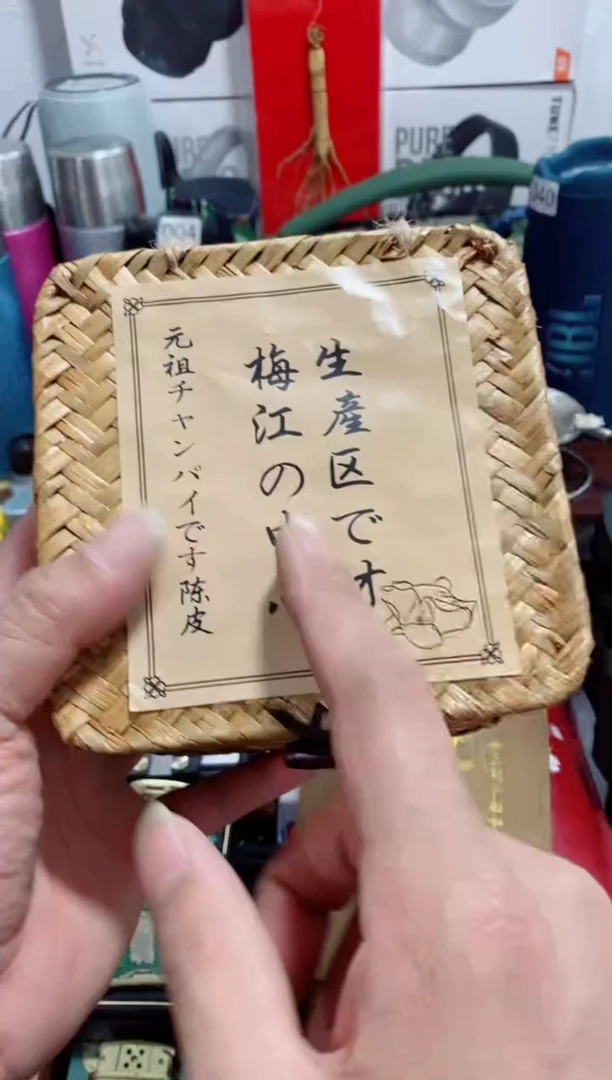 生産区でオ
梅江の中
元祖チャンパイです陳皮
004
040
PURE
PURE
TUNE
JBL